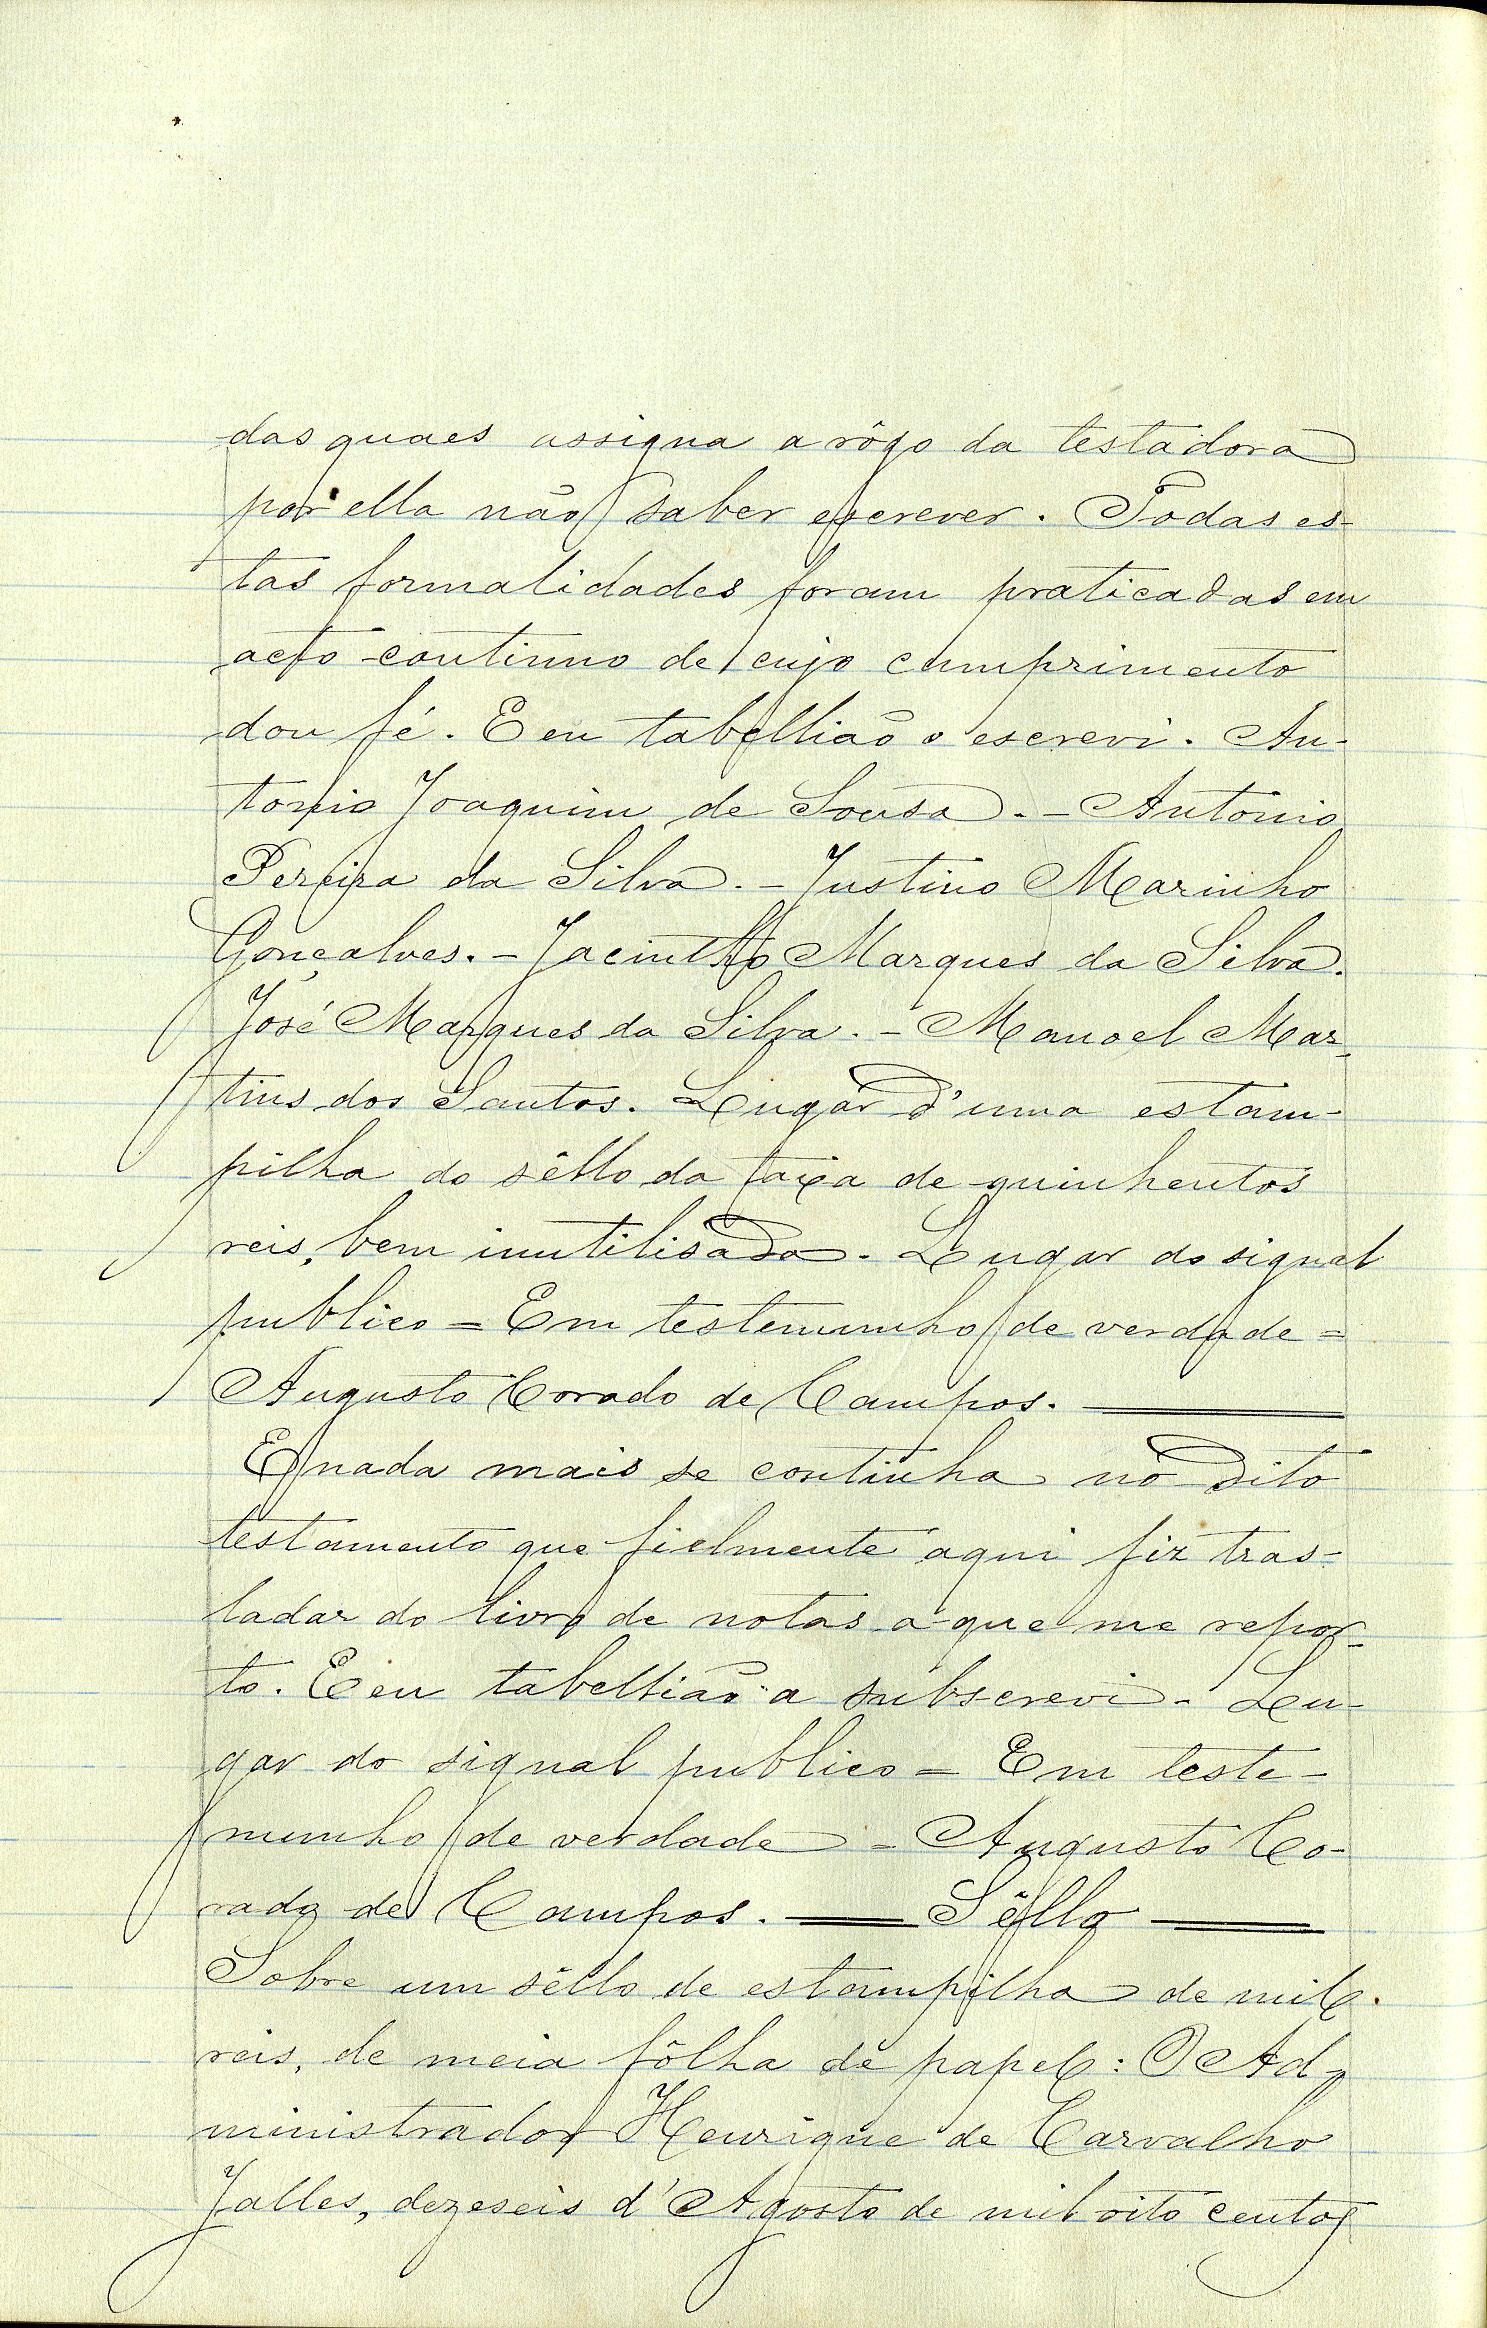 das quaes assigna a rôgo da testadora
por ella não saber escrever. Todas es-
tas formalidades foram praticadas em
acto continuo de cujo cumprimento
dou fé. E eu tabellião o escrevi. An-
tonio Joaquim de Sousa. - Antonio
Pereira da Silva. - Justino Marinho
Gonçalves. - Jacintho Marques da Silva.
José Marques da Silva. - Manoel Mar-
tins dos Santos. Lugar d'uma estam-
pilha do sêllo da taxa de quinhentos
reis, bem inutilisada. Lugar do signal
publico = Em testemunho de verdade =
Augusto Corado de Campos.
E nada mais se continha no dito
testamento que fielmente aqui fiz tras-
ladar do livro de notas a que me repor-
to. E eu tabellião a subscrevi - Lu-
gar do signal publico = Em teste-
munho de verdade = Augusto Co-
rado de Campos. — Sêllo —
Sobre um sêllo de estampilha de mil
reis, de meia fôlha de papel: O Ad-
ministrador Henrique de Carvalho
Jalles, dezeseis d'Agosto de mil oito centos